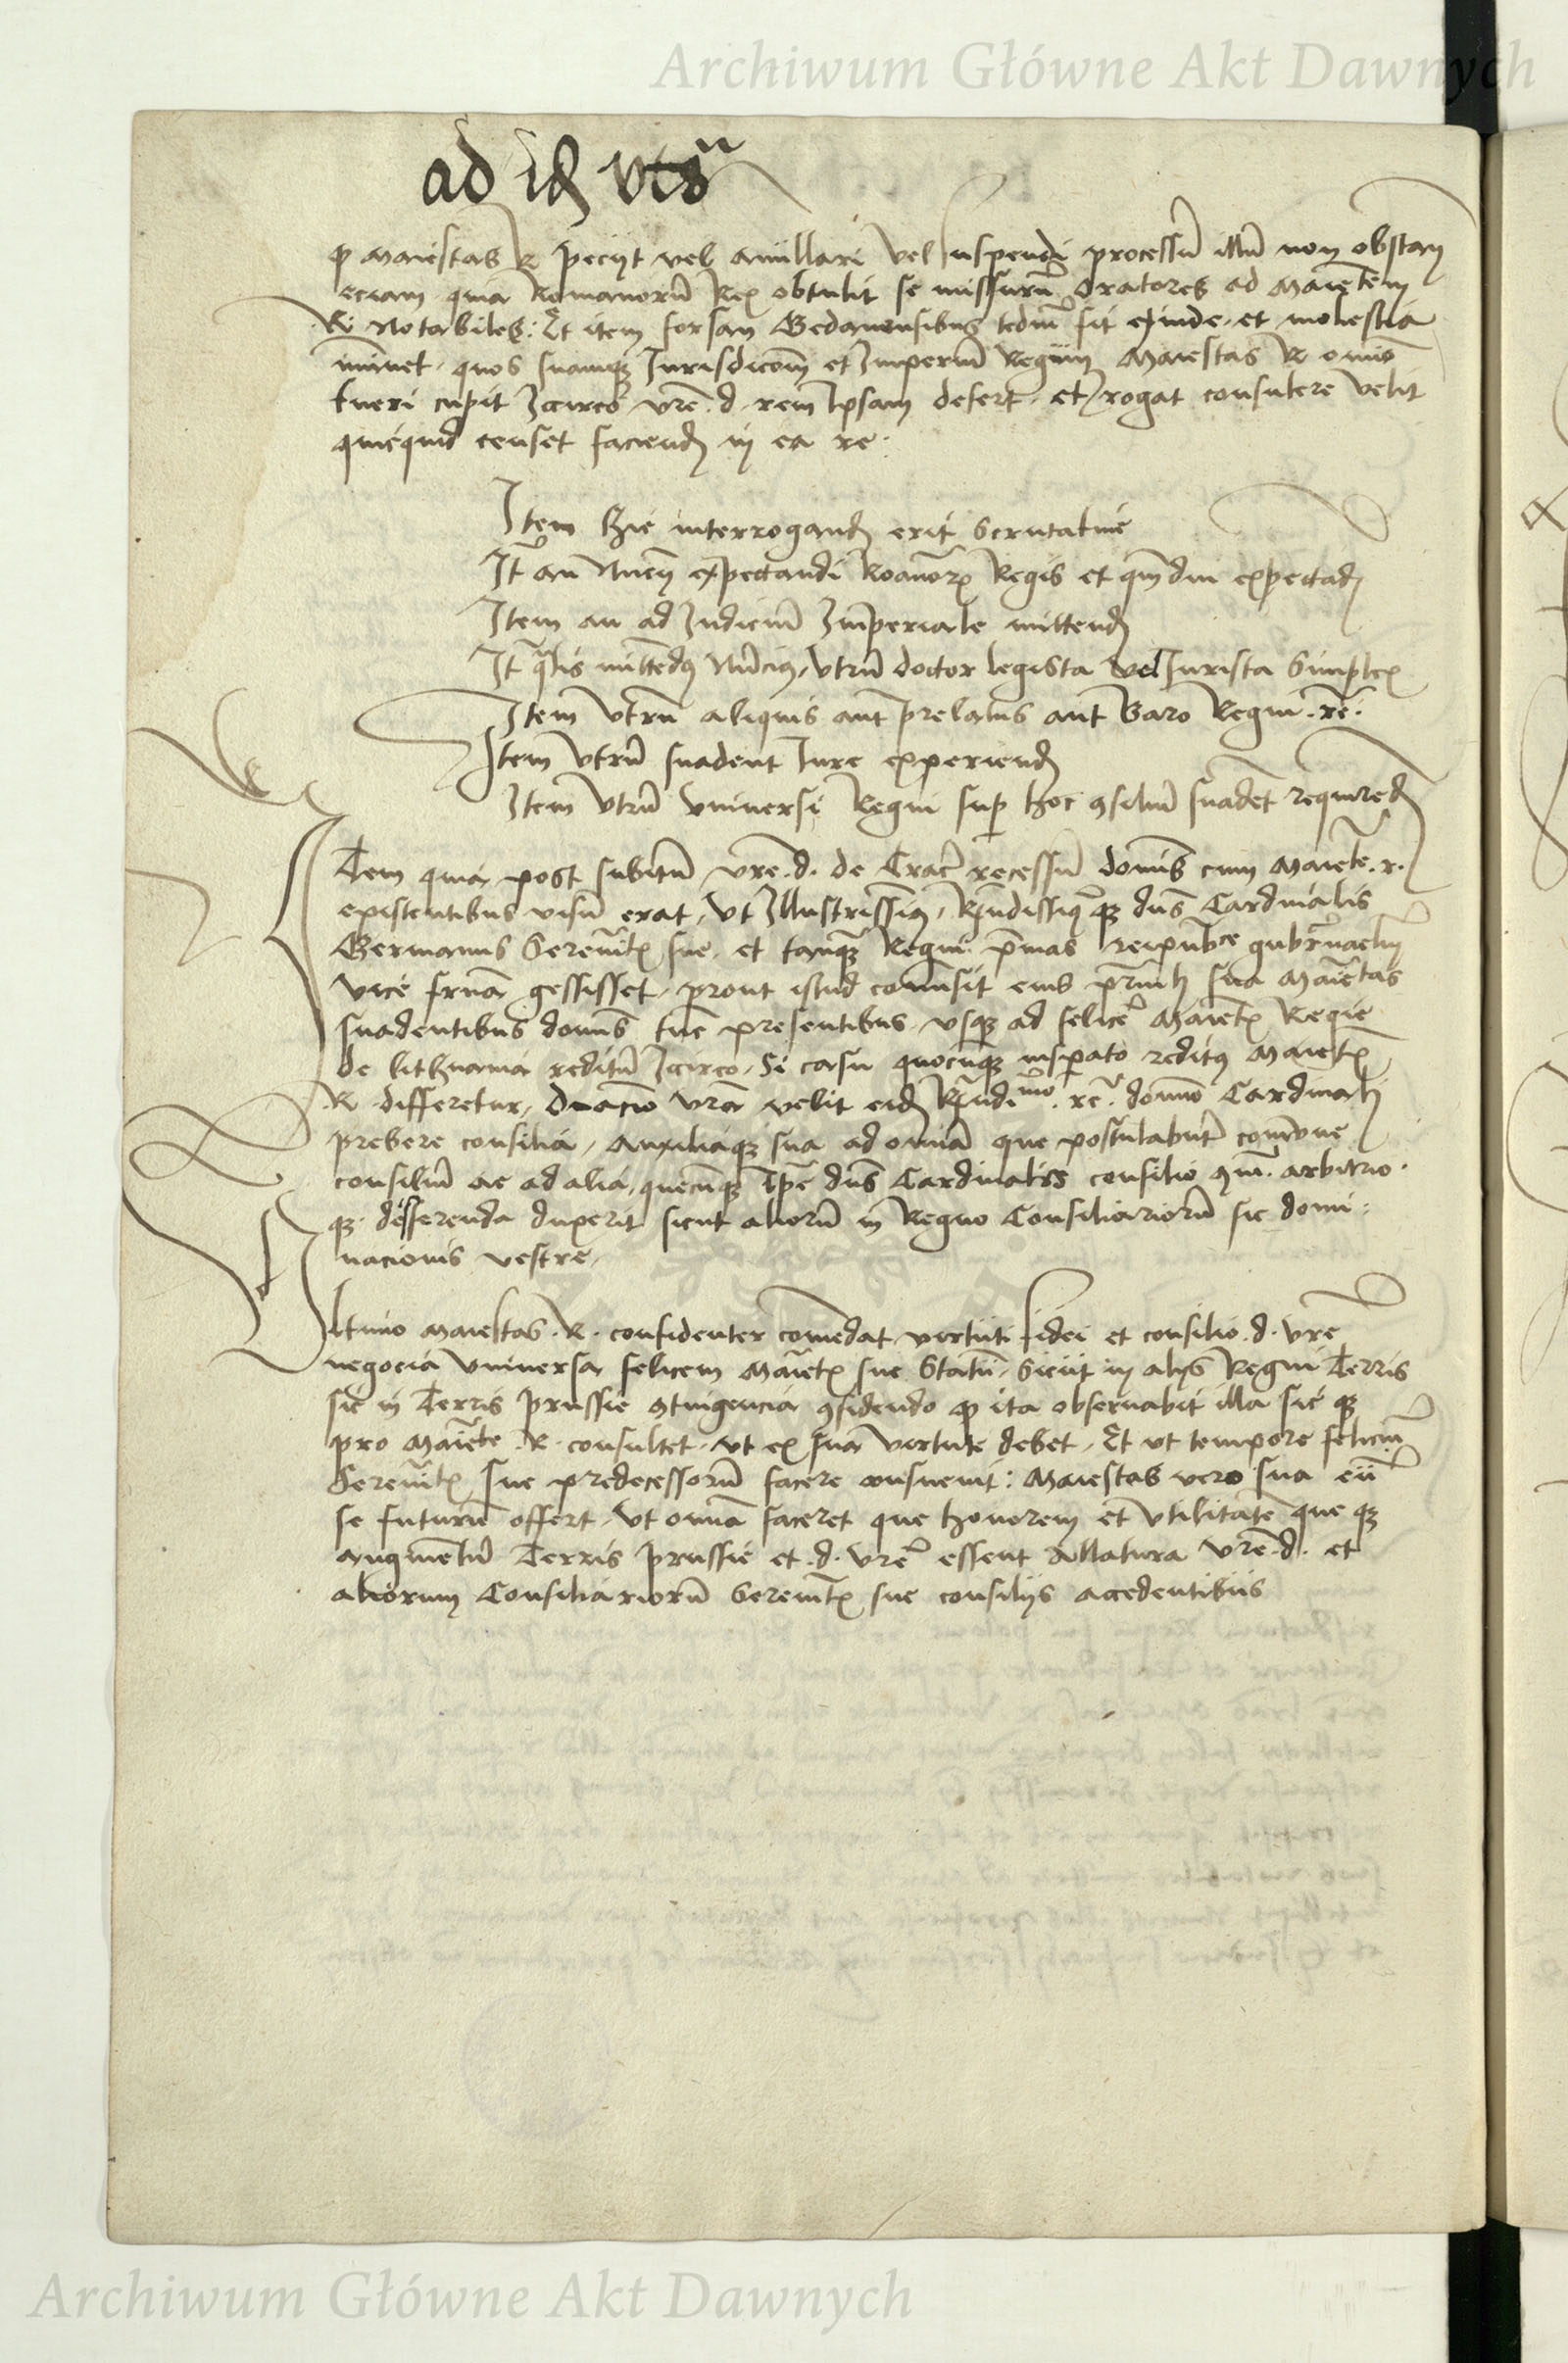 Archiwum Główne Akt Dawnych
ad id
ꝙ maiestas R peciit vel anullari vel suspendi processū illū non obstan
eciam quia Romanorū Rex obtulit se missurū Oratores ad Maiestatem
R Notabiles: Et item forsan Gedanensibus tediū sit exinde et molestia
quos suamqꝫ Jurisdicoēm et Imperiū Regium Maiestas R omnino
tueri cupit Iccirco vrē d rem Ipsam defert et rogat consulere velit
quicquid censet faciend in ea re:
Item hic interrogand erit scrutatiue
It an Nuncii expectandi Roanorꝝ Regis et qmdiu expectad
Item an ad Judiciū Imperiale mittend
It qlis mittedꝰ Nūciꝰ vtrū doctor legista vel Jurista Simplex
Item vtrū aliquis aut prelatus aut Baro Regni re
Item vtrū suadent Jure experiend
Item vtrū vniuersi Regni sup hoc ꝯsiliū suadēt required
Item quia post subitū vrē d de Crac recessū domīs cum Maiēte r
existentibus visū erat vt Illustrissimꝰ Rndissimꝰ qꝫ dns Cardinalis
Germanus Serenitꝭ sue et tanqꝫ Regni pmas reipublice gubernaclm
vice gessisset prout istud comisit eius sua Maiestas
suadentibus domīs tūc presentibus vsqꝫ ad felicē Maiestꝭ Regie
de lithuania reditū Iccirco Si casu quocunqꝫ insperato reditꝰ Maiestꝭ
R differetur, Dnacio vrā velit eid Rndimo re domino Cardinali
prebere consilia, Auxiliaqꝫ sua ad omīa que postulabunt comune
consiliū ac ad alia, quecunqꝫ Ipe dns Cardinalis consilio arbitrio
qꝫ defferenda duxerit sicut aliorū in Regno Consiliariorū sic domi
nacionis vestre
Vltimo maiestas R confidenter comēdat virtuti fidei et consilio d vrē
negocia vniuersa felicem Maiestꝭ sue Statū Sicut in aliis Regni Terris
sic in Terris prussie ꝯtingencia ꝯfidendo ꝙ ita obseruabit illa sic qꝫ
pro Maiēte R consultet vt ex sua virtute debet Et vt tempore felicium
Serenitꝭ sue predecessorū facere consueuit: Maiestas vero sua eū
se futurū offert vt omīa faceret que honorem et vtilitatē que qꝫ
augmentū Terris prussie et d vrē essent allatura vrē d et
aliorum Consiliariorū Serenitꝭ sue consiliis accedentibus
Archiwum Główne Akt Dawnych